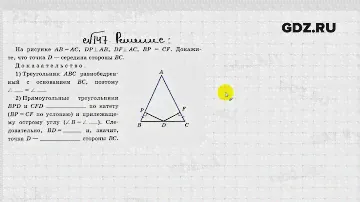 GDZ.RU
№147 Решение:
На рисунке AB=AC, DP⊥AB, DF⊥AC, BP = CF. Докажи-
те, что точка D — середина стороны BC.
Доказательство.
1) Треугольник ABC равнобедрен-
ный с основанием BC, поэтому
∠ ___ = ∠ ___.
2) Прямоугольные треугольники
BPD и CFD ______ по катету
(BP=CF по условию) и прилежаще-
му острому углу (∠B=∠___). Сле-
довательно, BD=______ и, значит,
точка D — ______ стороны BC.
A
P F
B D C